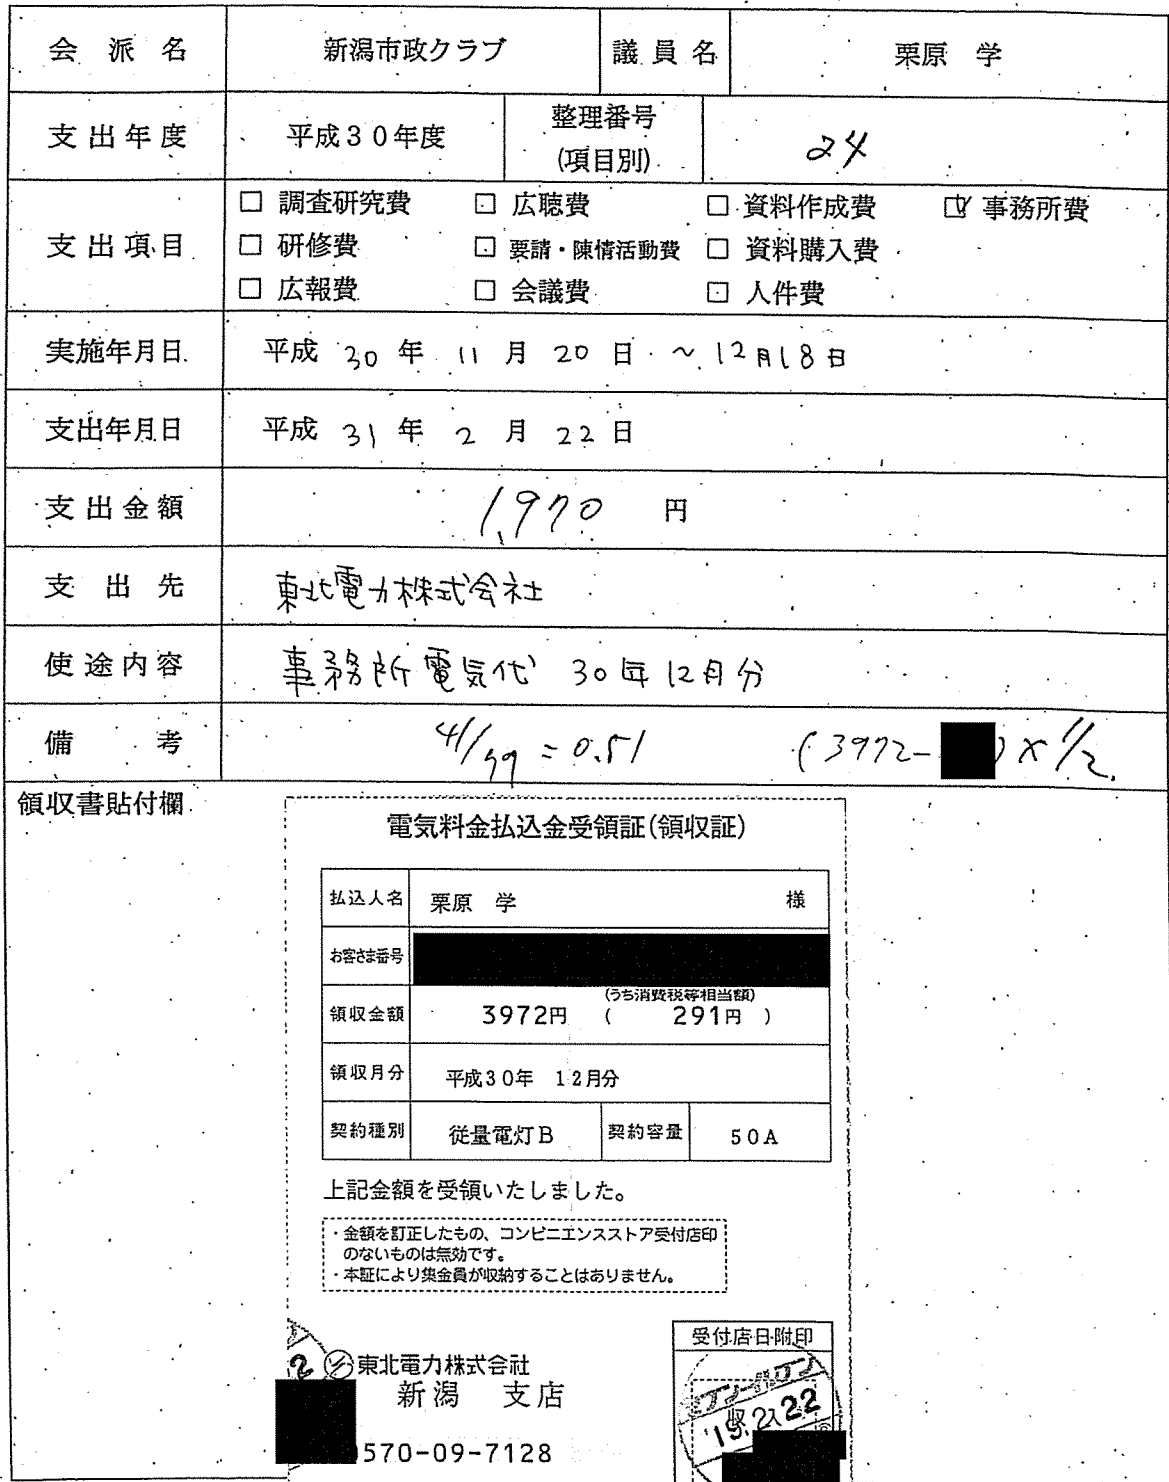 会派名 新潟市政クラブ 議員名 栗原 学
支出年度 平成30年度 整理番号(項目別) 24
支出項目
□ 調査研究費 □ 広聴費 □ 資料作成費 ☑ 事務所費
□ 研修費 □ 要請・陳情活動費 □ 資料購入費
□ 広報費 □ 会議費 □ 人件費
実施年月日 平成 30 年 11 月 20 日 ~ 12月18日
支出年月日 平成 31 年 2 月 22 日
支出金額 1,970 円
支出先 東北電力株式会社
使途内容 事務所電気代 30年12月分
備考 = 0.51 (3972- )×1/2
領収書貼付欄
電気料金払込金受領証(領収証)
払込人名 栗原 学 様
お客さま番号
領収金額 3972円 (うち消費税等相当額) ( 291円 )
領収月分 平成30年 12月分
契約種別 従量電灯B 契約容量 50A
上記金額を受領いたしました。
・金額を訂正したもの、コンビニエンスストア受付店印
のないものは無効です。
・本証により集金員が収納することはありません。
受付店日附印
東北電力株式会社
新潟 支店
570-09-7128
セブン-イレブン
'19.2.22